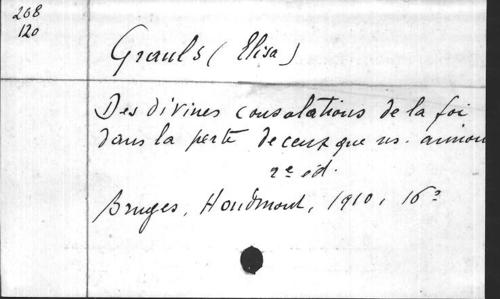 208
120
Grauls (Elisa)
Des divines consolations de la foi
dans la perte de ceux que ns. aimon
2e éd.
Bruges, Houdmont, 1910, 16°